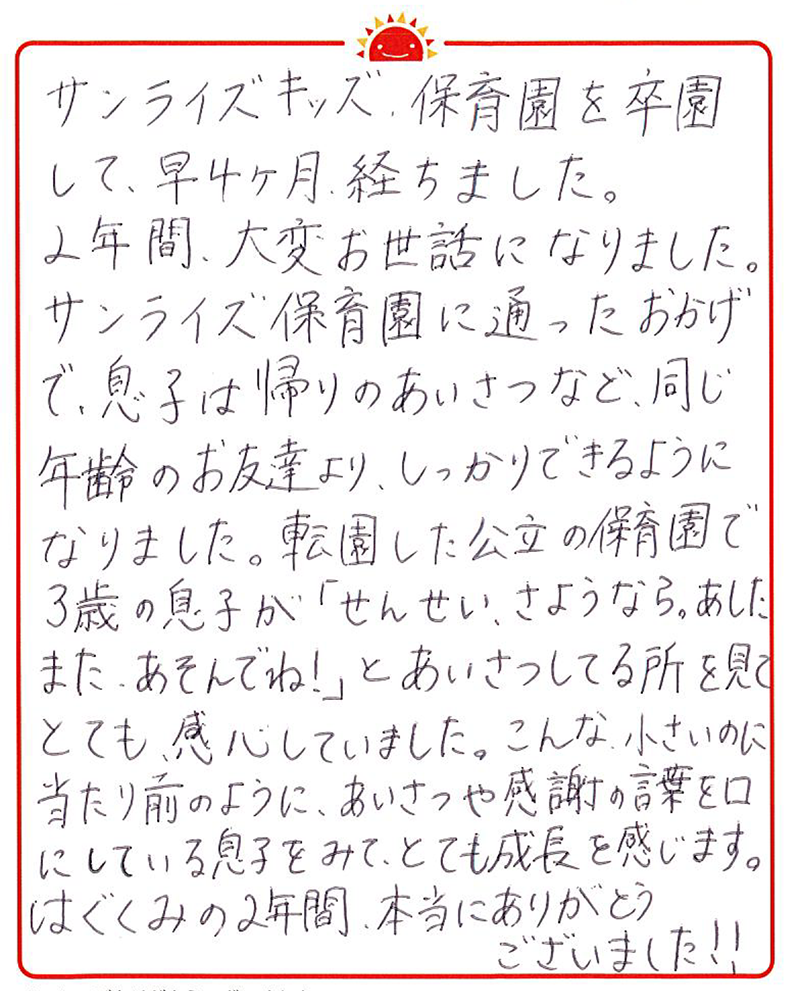 サンライズキッズ、保育園を卒園
して、早4ヶ月、経ちました。
2年間、大変お世話になりました。
サンライズ保育園に通ったおかげ
で、息子は帰りのあいさつなど、同じ
年齢のお友達より、しっかりできるように
なりました。転園した公立の保育園で
3歳の息子が「せんせい、さようなら。あした
また、あそんでね!」とあいさつしてる所を見て
とても、感心していました。こんな、小さいのに
当たり前のように、あいさつや感謝の言葉を口
にしている息子をみて、とても成長を感じます。
はぐくみの2年間、本当にありがとう
ございました!!